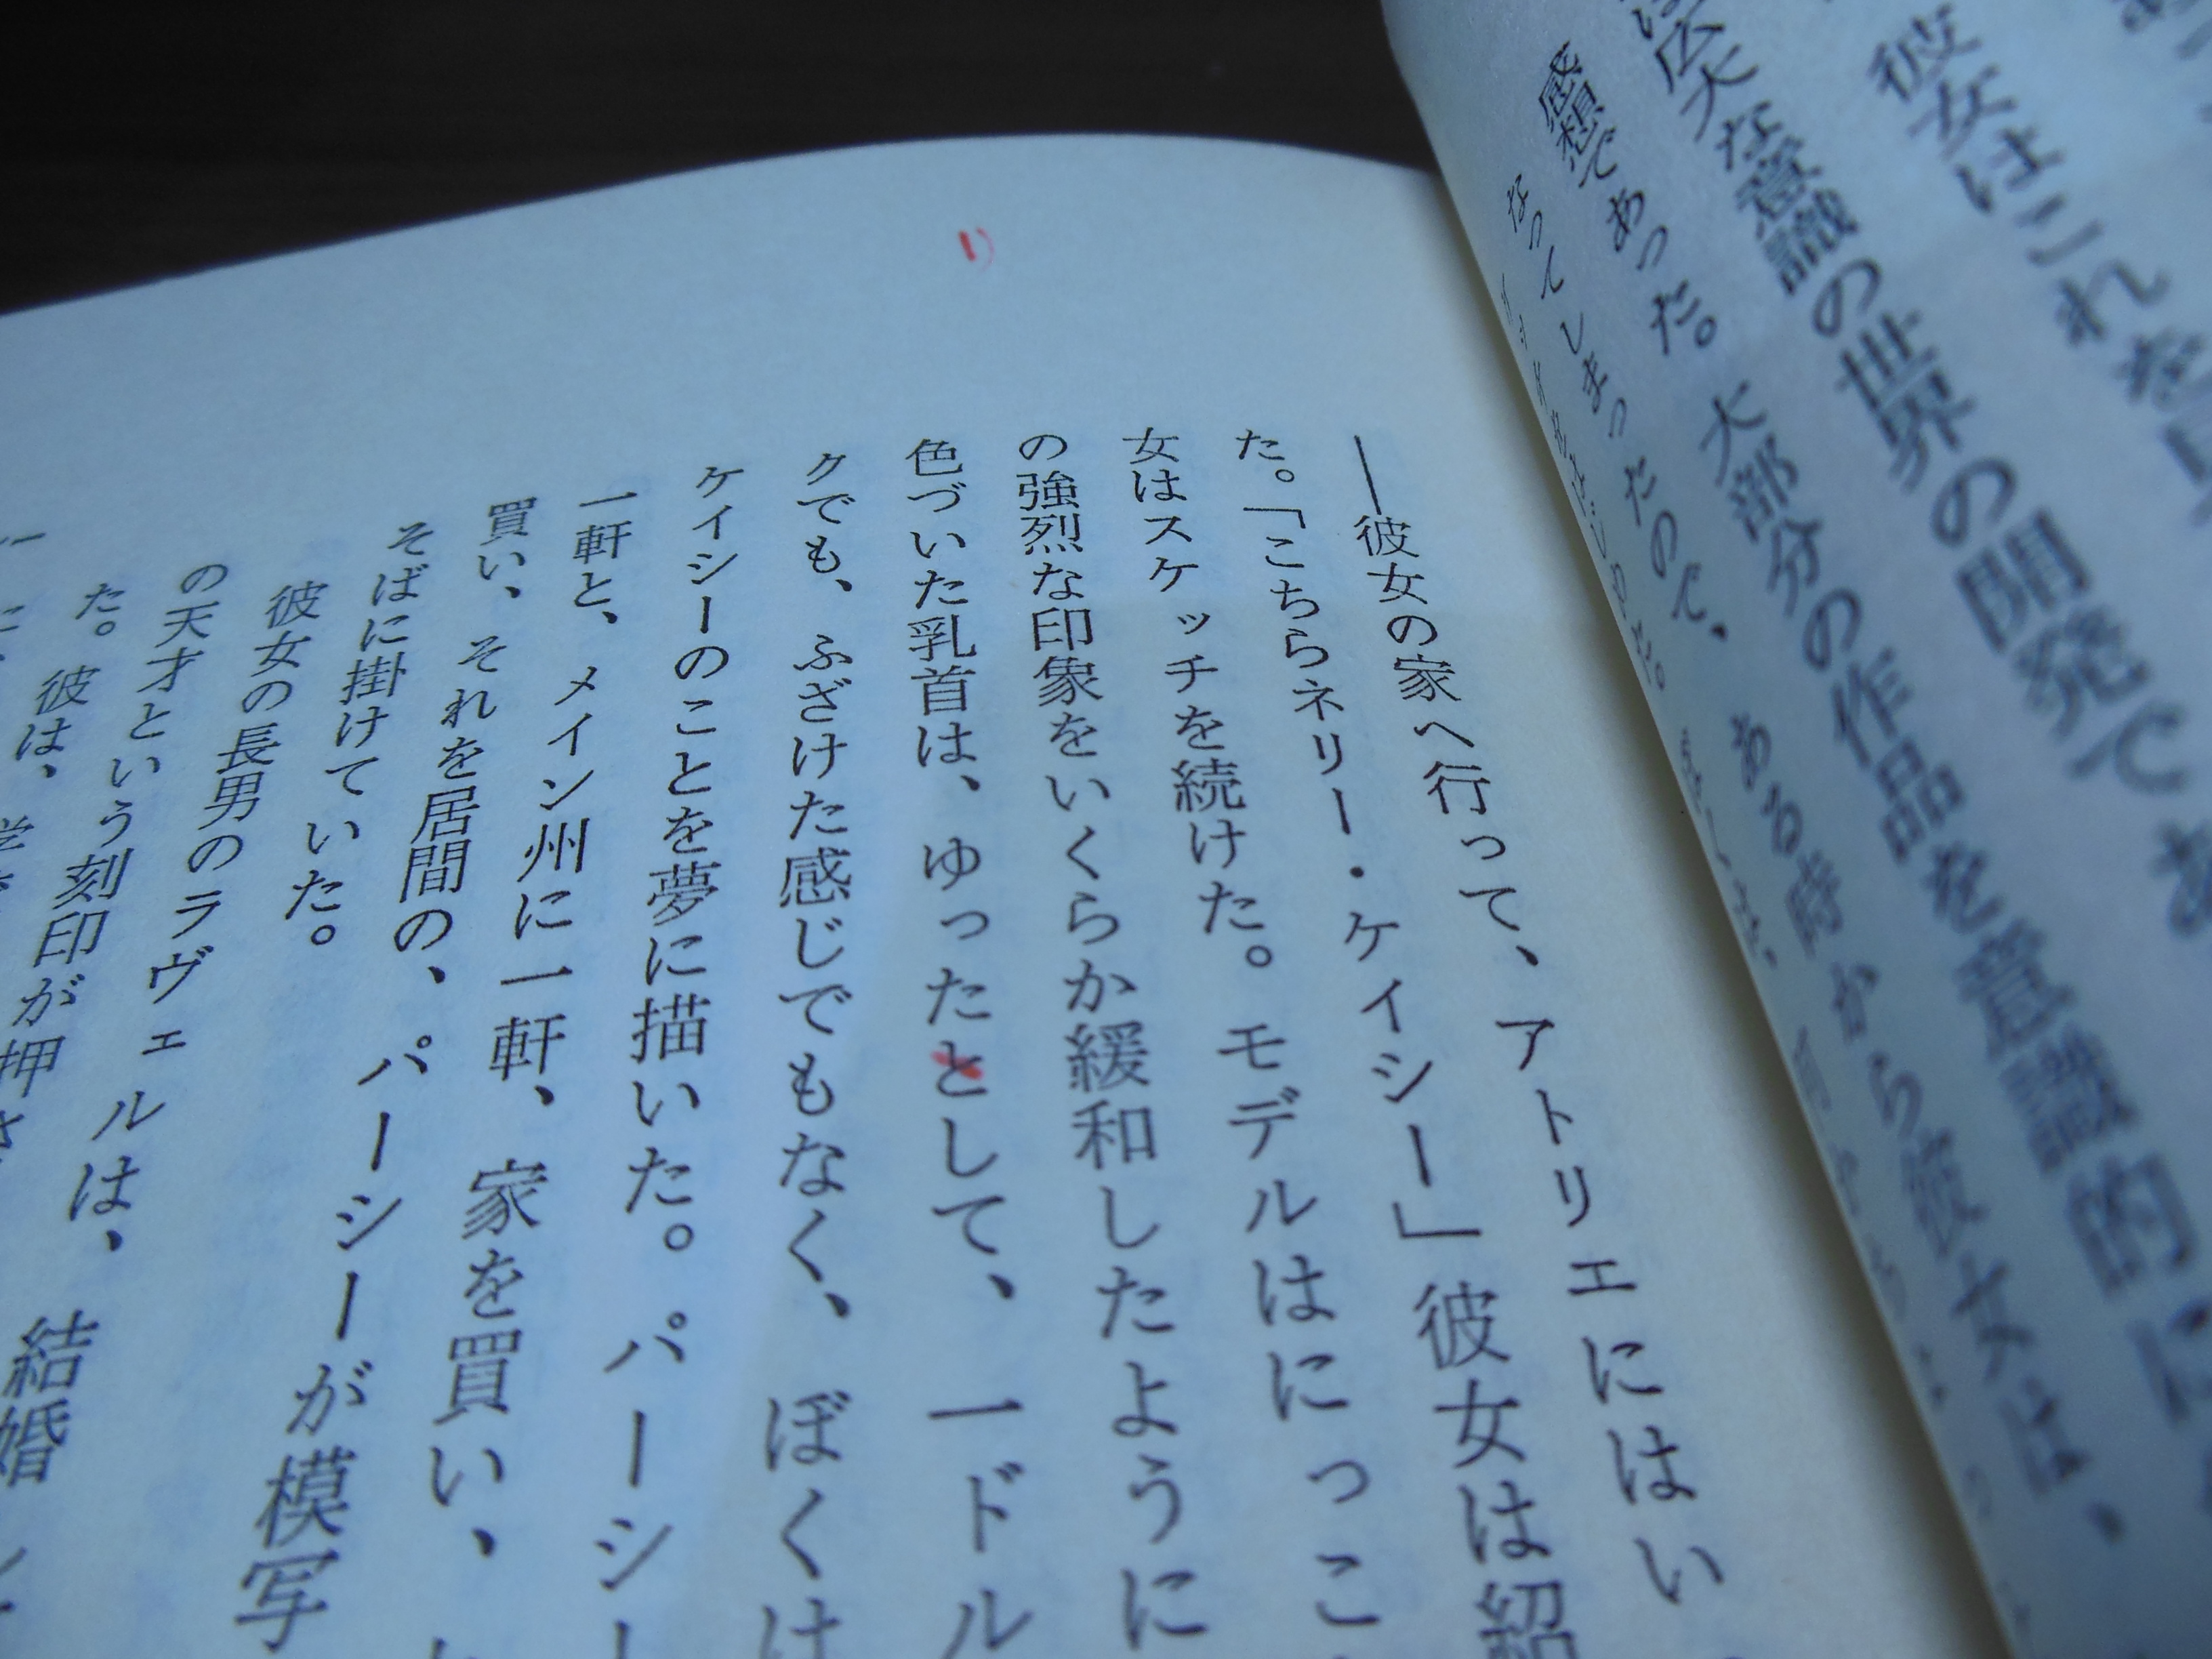 彼女はこれを
広大な意識の世界の開発であ
感想であった。大部分の作品を意識的に
なってしまったので、ある時から彼女は、
り
―彼女の家へ行って、アトリエにはい
た。「こちらネリー・ケイシー」彼女は紹
女はスケッチを続けた。モデルはにっこ
の強烈な印象をいくらか緩和したように
色づいた乳首は、ゆったとして、一ドル
クでも、ふざけた感じでもなく、ぼくは
ケイシーのことを夢に描いた。パーシー
一軒と、メイン州に一軒、家を買い、
買い、それを居間の、パーシーが模写
そばに掛けていた。
彼女の長男のラヴェルは、結婚
の天才という刻印が押さ
た。彼は、